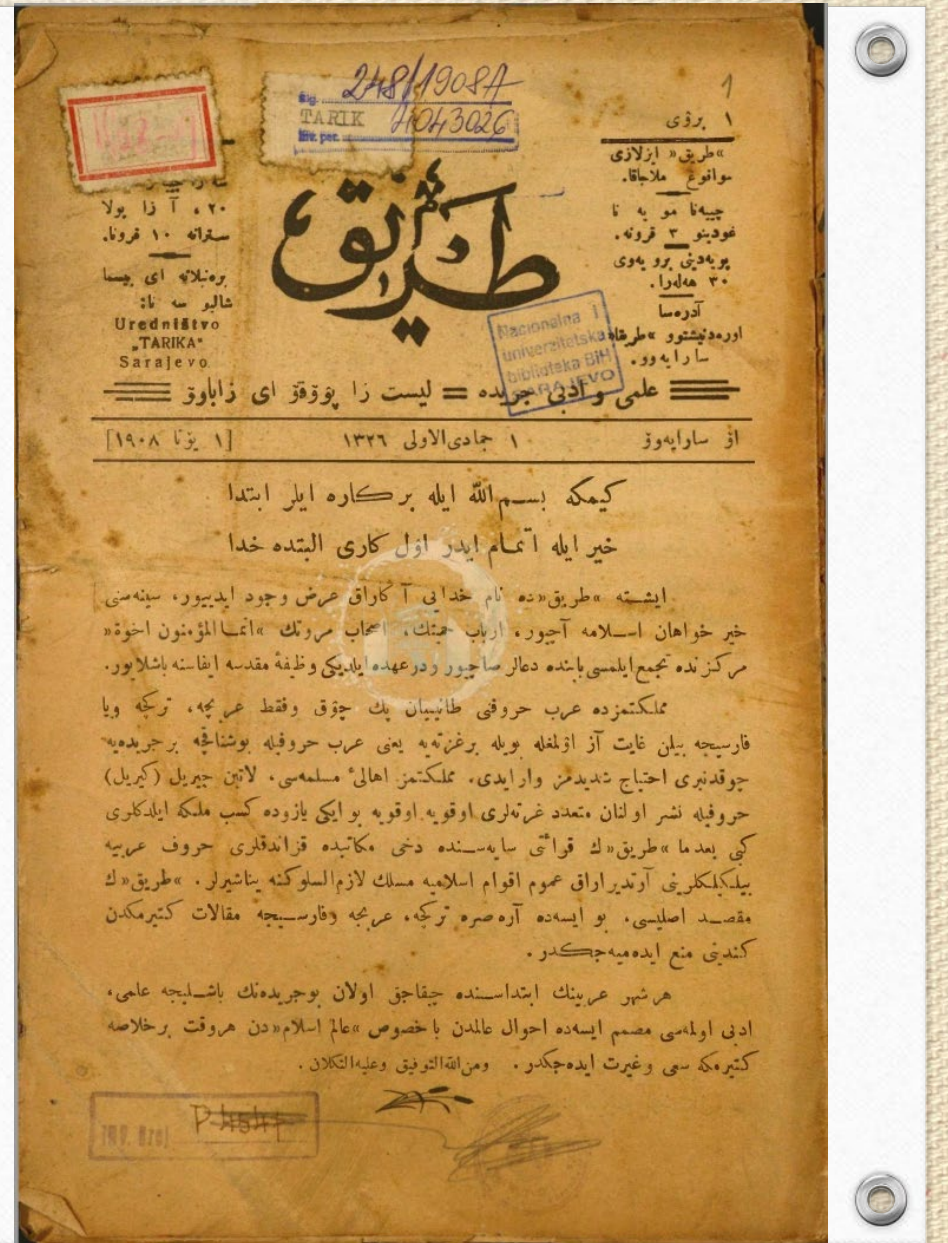 248/1908A
Sig.
TARIK 4043026
Inv. per.
1
١ برۋى
»طريق« ايزلازى
سوافوغ ملاجاقا.
جيەنا مو يە نا
غودينو ٣ قرونە.
پويەدينى برو يەوى
٣٠ هەلەرا.
آدرەسا
اورەدنيشتوو »طريقا«
سارايەوو.
٢٠، آ زا پولا
سترانە ١٠ قرونا.
شالیو سە نا:
Uredništvo
„TARIKA“
Sarajevo
طريق
Nacionalna i
univerzitetska
biblioteka BiH
SARAJEVO
علمى و ادبى جريده = ليست زا پۆۋقۆ اى زاباوۆ
اۆ سارايەوۆ
١ جمادى الاولى ١٣٢٦
[١ يۆنا ١٩٠٨]
كيمكه بسم الله ايله بر كاره ايلر ابتدا
خير ايله اتمام ايدر اول كارى البتده خدا
ايشته »طريق«ده نام خدايى آ كاراق عرض وجود ايدييور، سينه‌سنى
خير خواهان اسلامه آچيور، ارباب همتك، اصحاب مروتك »انما المؤمنون اخوة«
مركزنده تجمع ايلمسى بابنده دعالر صاچيور ودرعهده ايلديكى وظيفهٔ مقدسه ايفاسنه باشلايور.
مملكتمزده عرب حروفنى طانييان پك چۆق وفقط عربجه، تركجه ويا
فارسيجه بيلن غايت آز اۆلمغله بويله برغزته‌يه يعنى عرب حروفيله بوشناقجه برجريده‌يه
چوقدنبرى احتياج شديدمز وار ايدى. مملكتمز اهالئ مسلمه‌سى، لاتين جيريل (كيريل)
حروفيله نشر اولنان متعدد غزته‌لرى اوقويه اوقويه بو ايكى يازوده كسب ملكه ايلدكلرى
كبى بعدما »طريق«ك قرائتى سايه‌سنده دخى مكاتبده قزاندقلرى حروف عربيه
بيلكيلكلرينى آرتديراراق عموم اقوام اسلاميه مسلك لازم السلوكنه يناشيرلر. »طريق«ك
مقصد اصليسى، بو ايسه‌ده آره صره تركجه، عربجه وفارسيجه مقالات كتيرمكدن
كندينى منع ايده‌ميه‌جكدر.
هر شهر عربينك ابتداسنده چيقاجق اولان بوجريده‌نك باشليجه علمى،
ادبى اولمه‌سى مصمم ايسه‌ده احوال عالمدن با خصوص »عالم اسلام«دن هروقت برخلاصه
كتيرمكه سعى وغيرت ايده‌جكدر. ومن الله التوفيق وعليه التكلان.
P-4541